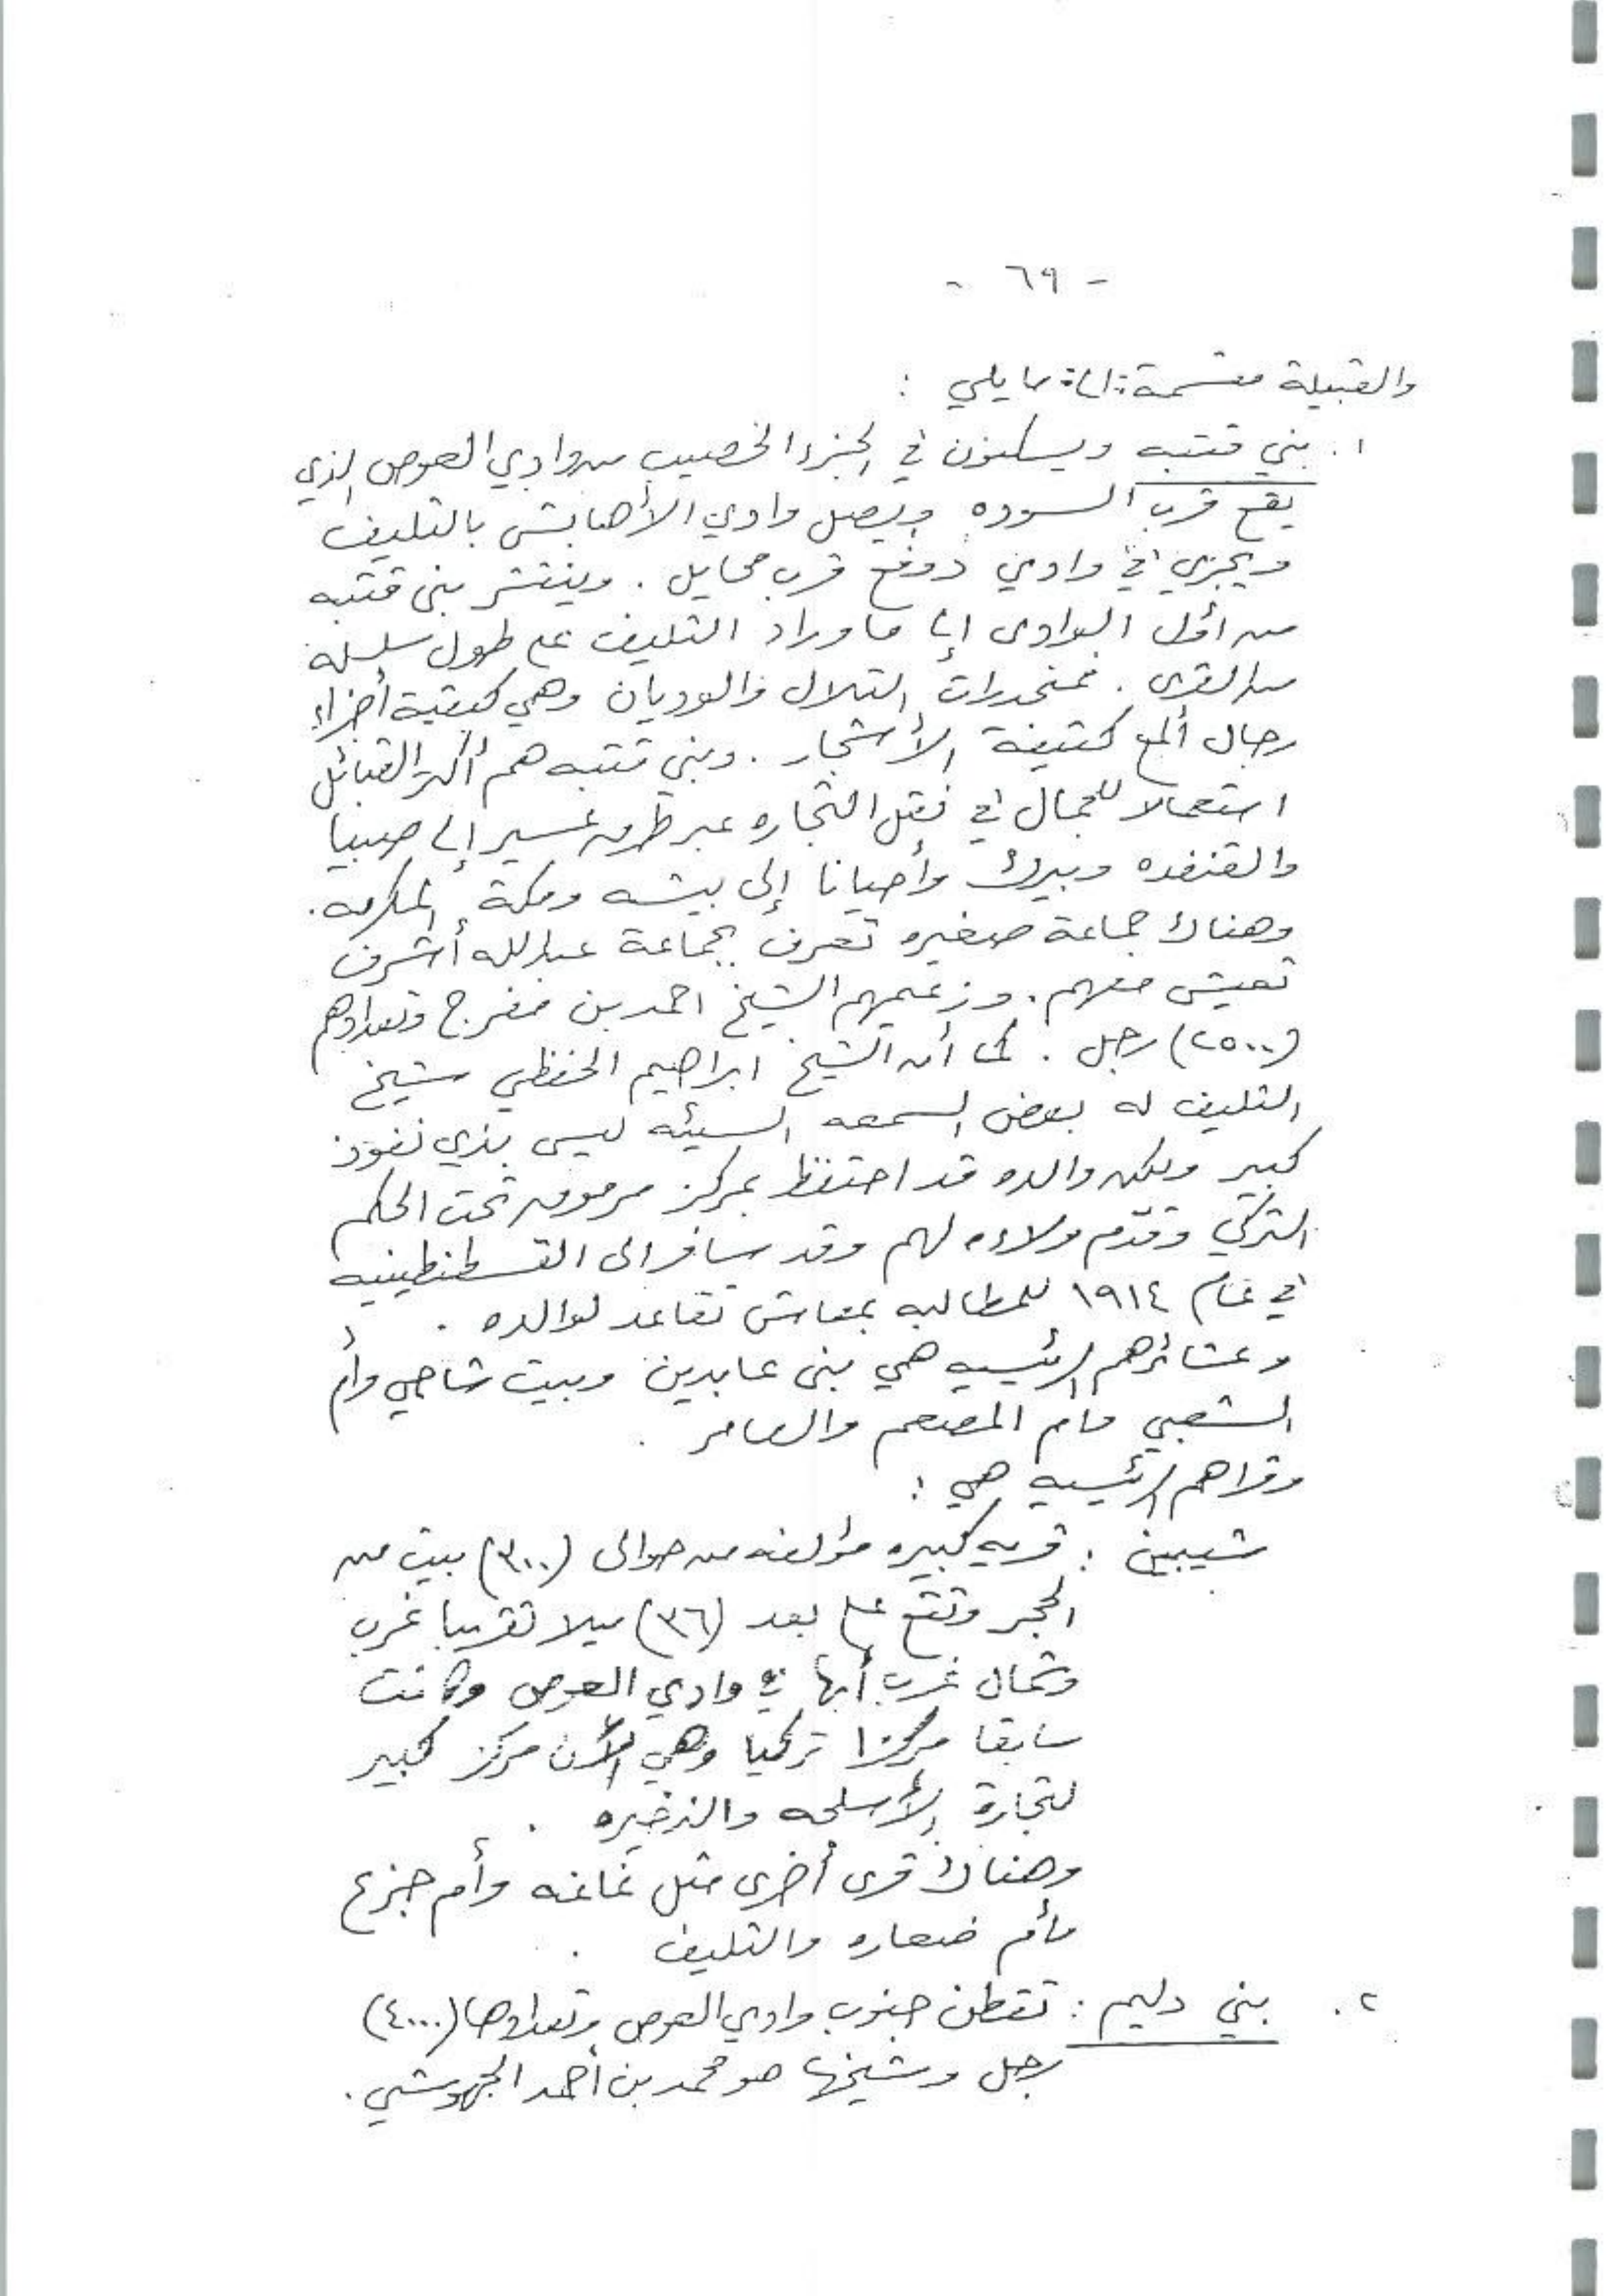 - ٦٩ -
والقبيلة مقسمة إلى ما يلي :
١. بني قتبه ويسكنون في الجزء الخصيب من وادي العوص الذي
يقع قرب السوده ويصل وادي الأصابش بالتليف
ويجري في وادي دوفع قرب محايل . وينتشر بنى قتبه
من أول الوادى إلى ما وراء التليف على طول سلسله
من القرى . فمنحدرات التلال والوديان وهي كبقية أجزاء
رجال ألمع كثيفة الأشجار . وبني قتبه هم أكثر القبائل
استعمالا للجمال في نقل التجاره عبر طرق عسير إلى صبيا
والقنفده وبرك وأحيانا إلى بيشه ومكة المكرمه .
وهناك جماعة صغيره تعرف بجماعة عبدالله أشرف
تعيش معهم . وزعيمهم الشيخ احمد بن مفرح وتعدادهم
(٢٥٠٠) رجل . كما أن الشيخ ابراهيم الحفظي شيخ
التليف له بعض السمعه السيئه ليس بذي نفوذ
كبير ولكن والده قد احتفظ بمركز مرموق تحت الحكم
التركي وقدّم ولاءه لهم وقد سافر الى القسطنطينيه
في عام ١٩١٤ للمطالبه بمعاش تقاعد لوالده .
وعشائرهم الرئيسيه هي بنى عابدين وبيت شاحي وأم
الشعبي وام المصعم والعامر .
وقراهم الرئيسيه هي :
شيبين : قريه كبيره مؤلفه من حوالى (٣٠٠) بيت من
الحجر وتقع على بعد (٣٦) ميلا تقريبا غرب
وشمال غرب أبها في وادي العوص وكانت
سابقا مركزا تركيا وهي الآن مركز كبير
لتجارة الأسلحه والذخيره .
وهناك قرى أخرى مثل وأم جزع
وأم ضعاره والتليف .
٢. بني دليم : تقطن جنوب وادي العوص وتعدادها (٤٠٠٠)
رجل وشيخها هو محمد بن أحمد الجهوشي .